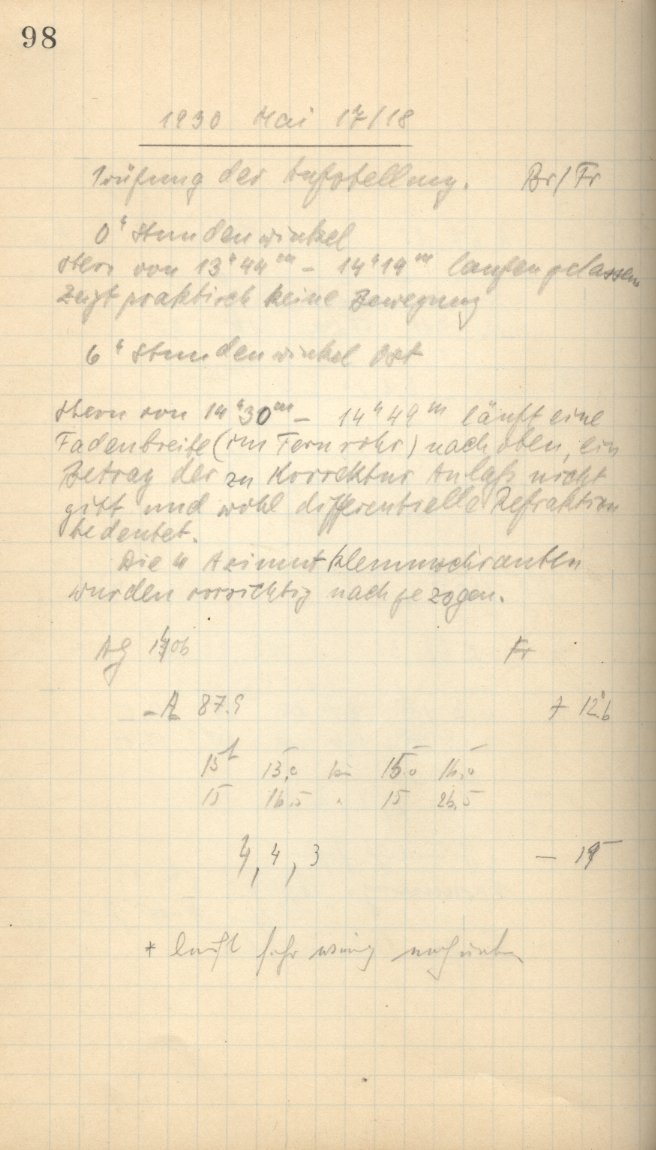 98
1930 Mai 17/18
Prüfung der Aufstellung. Br/Fr
0ʰ Stundenwinkel
Stern von 13ʰ44ᵐ – 14ʰ19ᵐ laufen gelassen
Zeigt praktisch keine Bewegung
6ʰ Stundenwinkel Ost
Stern von 14ʰ30ᵐ – 14ʰ49ᵐ läuft eine
Fadenbreite (im Fernrohr) nach oben, ein
Betrag der zu Korrektur Anlaß nicht
gibt und wohl differentielle Refraktion
bedeutet.
Die 4 Azimutklemmschrauben
wurden vorsichtig nachgezogen.
Fr
87.9
15ʰ 15.0 16.0
15 16.5 15 26.5
4, 4, 3
* läuft sehr wenig nach unten